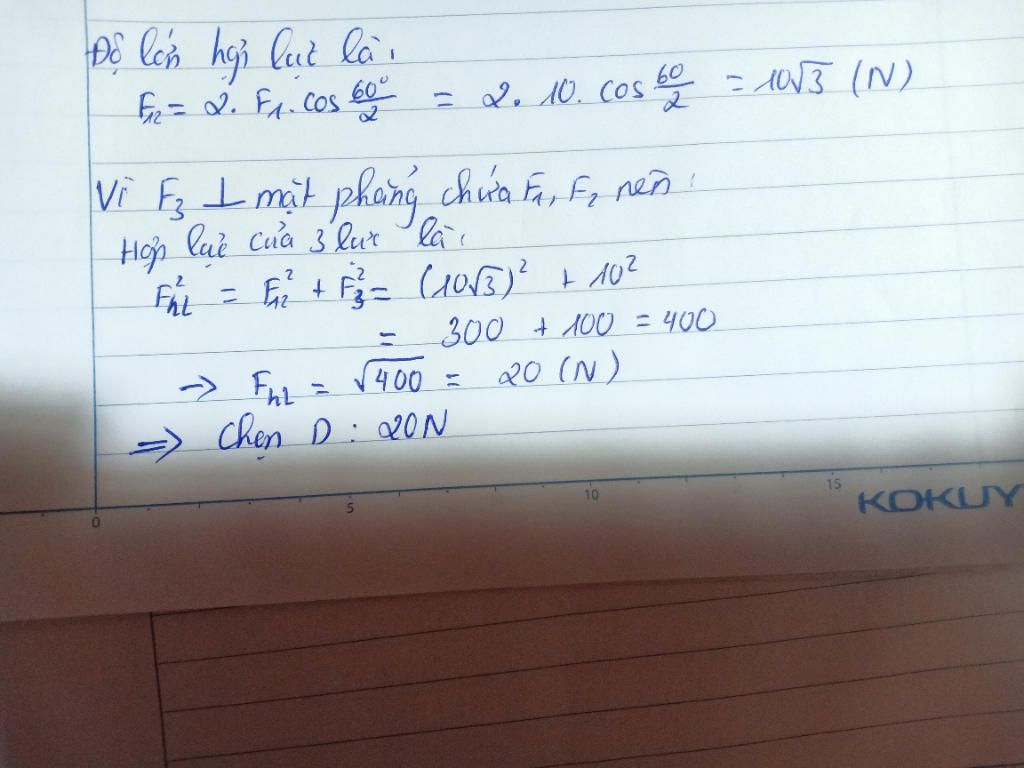 Độ lớn hợp lực là:
F₁₂ = 2. F₁. cos 60°/2 = 2. 10. cos 60/2 = 10√3 (N)
Vì F₃ ⊥ mặt phẳng chứa F₁, F₂ nên:
Hợp lực của 3 lực là:
F²hl = F₁₂² + F₃² = (10√3)² + 10²
= 300 + 100 = 400
→ Fhl = √400 = 20 (N)
⇒ Chọn D : 20N
0 5 10 15
KOKUY